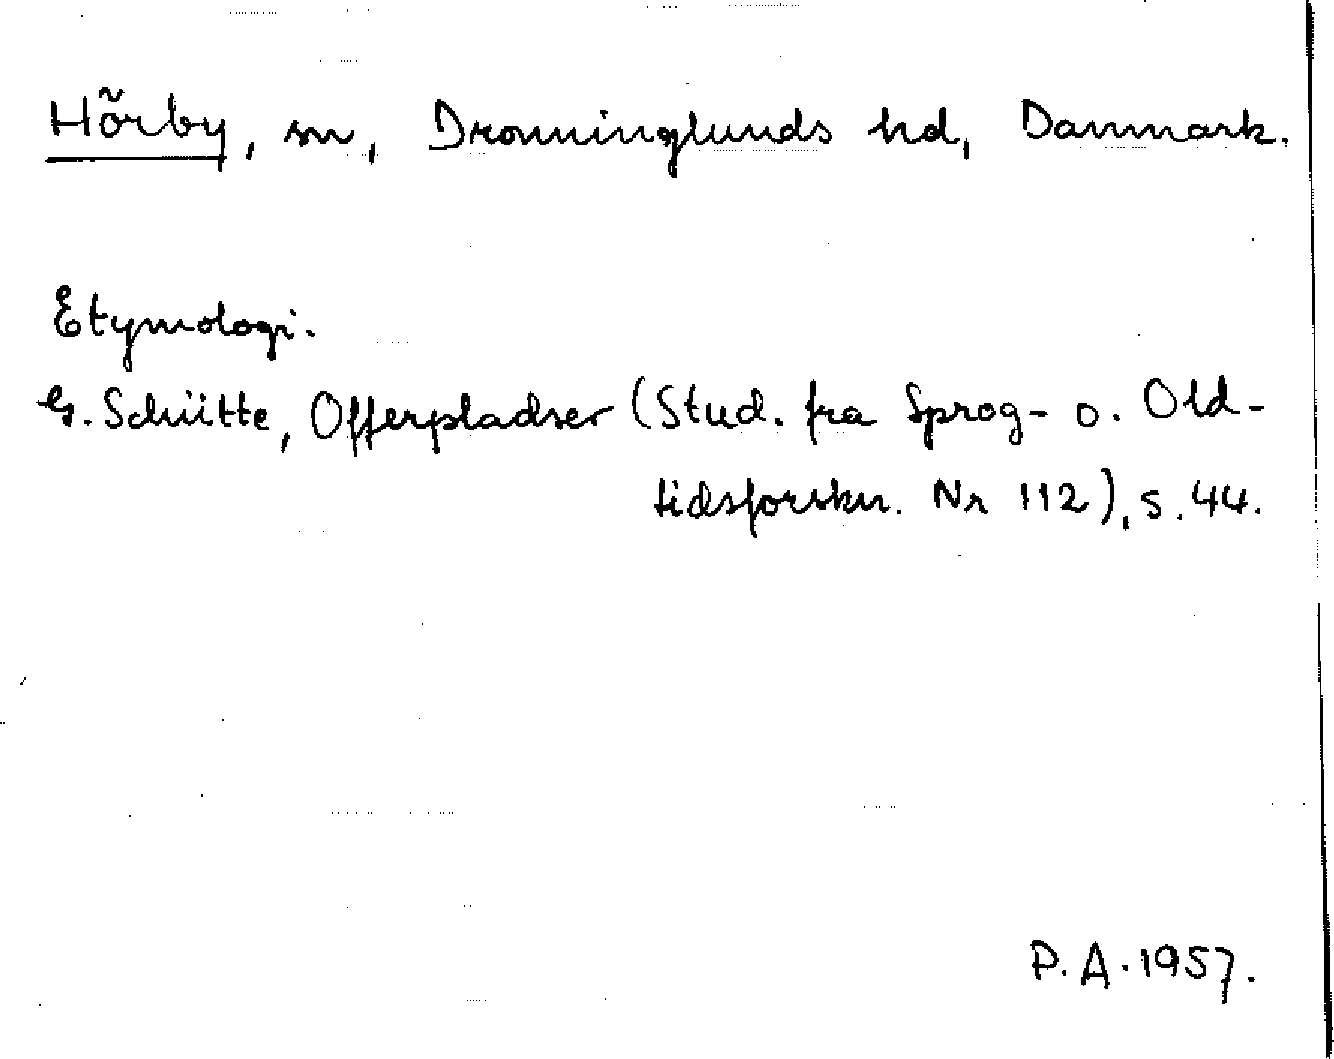 Hõrby, sn, Dronninglunds hd, Danmark.
Etymologi.
G. Schütte, Offerpladser (Stud. fra Sprog- o. Old-
tidsforskn. Nr 112), s. 44.
P. A. 1957.